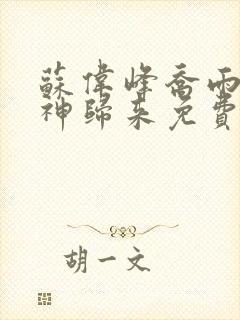 蘇偉峰喬雨
神歸來免費
胡一文